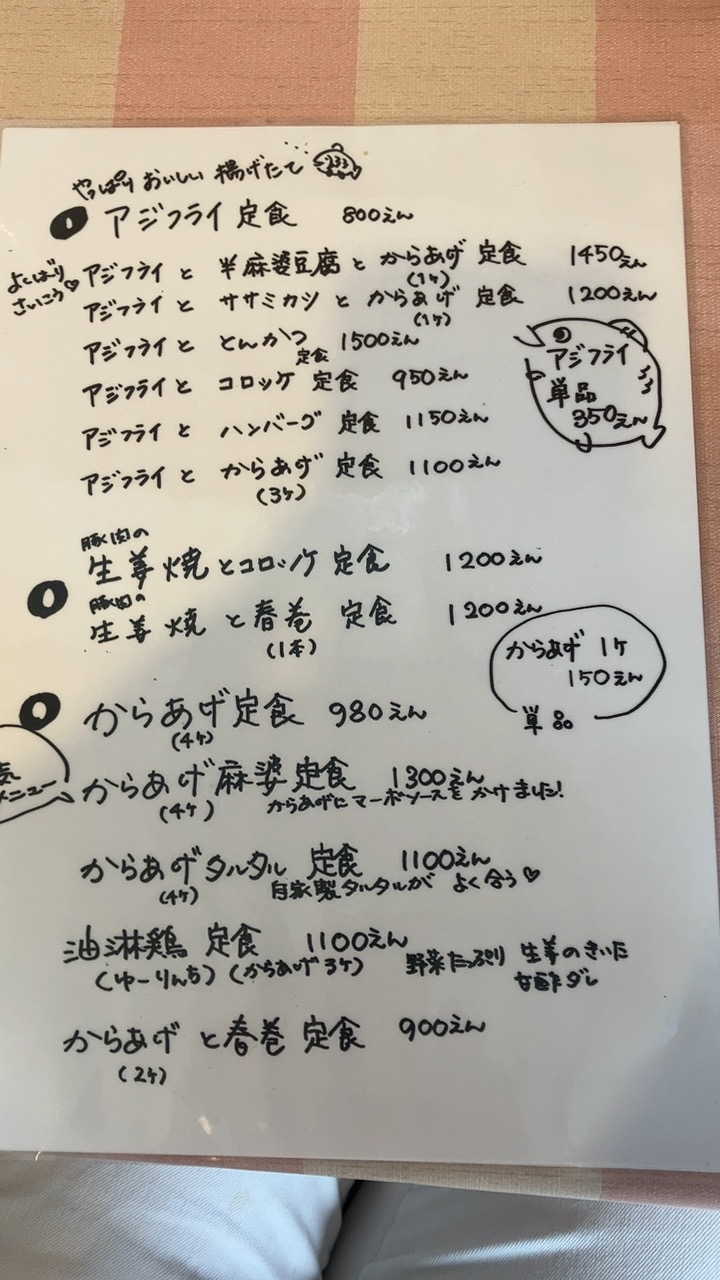 やっぱり おいしい 揚げたて
アジフライ 定食 800えん
よくばり
さいこう♡
アジフライ と 半麻婆豆腐 と からあげ 定食 1450えん
(1ヶ)
アジフライ と ササミカツ と からあげ 定食 1200えん
(1ヶ)
アジフライ と とんかつ 定食 1500えん
アジフライ と コロッケ 定食 950えん
アジフライ と ハンバーグ 定食 1150えん
アジフライ と からあげ 定食 1100えん
(3ヶ)
アジフライ
単品
350えん
豚肉の
生姜焼とコロッケ 定食 1200えん
豚肉の
生姜焼 と春巻 定食 1200えん
(1本)
からあげ 1ヶ
150えん
単品
からあげ定食 980えん
(4ヶ)
気
メニュー
からあげ麻婆定食 1300えん
(4ヶ) からあげにマーボソースをかけました!
からあげタルタル 定食 1100えん
(4ヶ) 自家製タルタルが よく合う♡
油淋鶏 定食 1100えん
(ゆーりんち) (からあげ3ヶ) 野菜たっぷり 生姜のきいた
甘酢ダレ
からあげ と春巻 定食 900えん
(2ヶ)